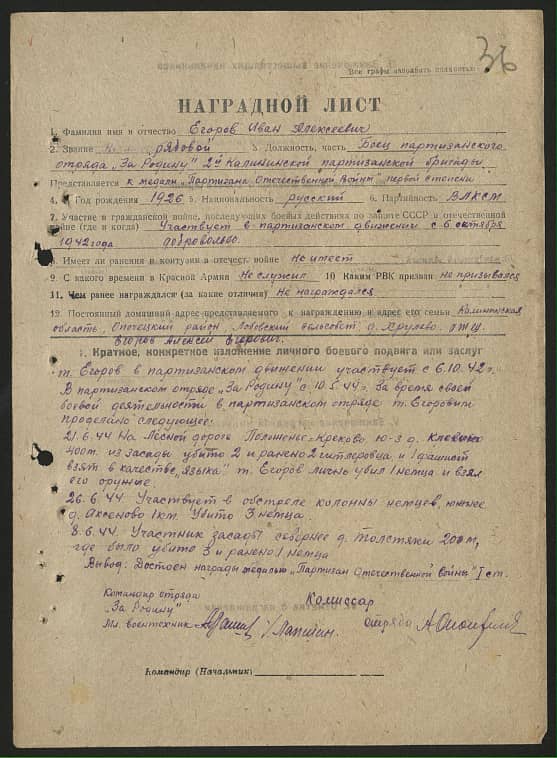 36
Все графы заполнять полностью
НАГРАДНОЙ ЛИСТ
1. Фамилия имя и отчество Егоров Иван Алексеевич
2. Звание рядовой 3. Должность, часть Боец партизанского
отряда „За Родину" 2й Калининской партизанской бригады
Представляется к медали „Партизана Отечественной Войны" первой степени
4. Год рождения 1926 5. Национальность русский 6. Партийность ВЛКСМ
7. Участие в гражданской войне, последующих боевых действиях по защите СССР и отечественной
войне (где и когда) Участвует в партизанском движении с 6 октября
1942 года добровольно.
8. Имеет ли ранения и контузии в отечест. войне Не имеет
9. С какого времени в Красной Армии Не служил 10 Каким РВК призван не призывался
11. Чем ранее награждался (за какие отличия) Не награждался
12. Постоянный домашний адрес представляемого к награждению и адрес его семьи Калининская
область, Опочецкий район, сельсовет д. Крулево.
Егоров Алексей Егорович.
I. Краткое, конкретное изложение личного боевого подвига или заслуг
т. Егоров в партизанском движении участвует с 6.10.42 г.
В партизанском отряде „За Родину" с 10.5.44 г. За время своей
боевой деятельности в партизанском отряде т. Егоровым
проделано следующее:
21.6.44 На лесной дороге ю-з д.
400 м. из засады убито 2 и ранено 2 гитлеровца и 1 фашист
взят в качестве „языка" т. Егоров лично убил 1 немца и взял
его оружие.
26.6.44 Участвует в обстреле колонны немцев, южнее
д. Аксеново 1 км. Убито 3 немца
8.6.44. Участник засады севернее д. Толстяки 200 м,
где было убито 3 и ранено 1 немца
Вывод: Достоен награды медалью „Партизан Отечественной Войны" I ст.
Командир отряда
„За Родину"
Мл. воентехник /Лапшин.
Комиссар
отряда
Командир (Начальник)